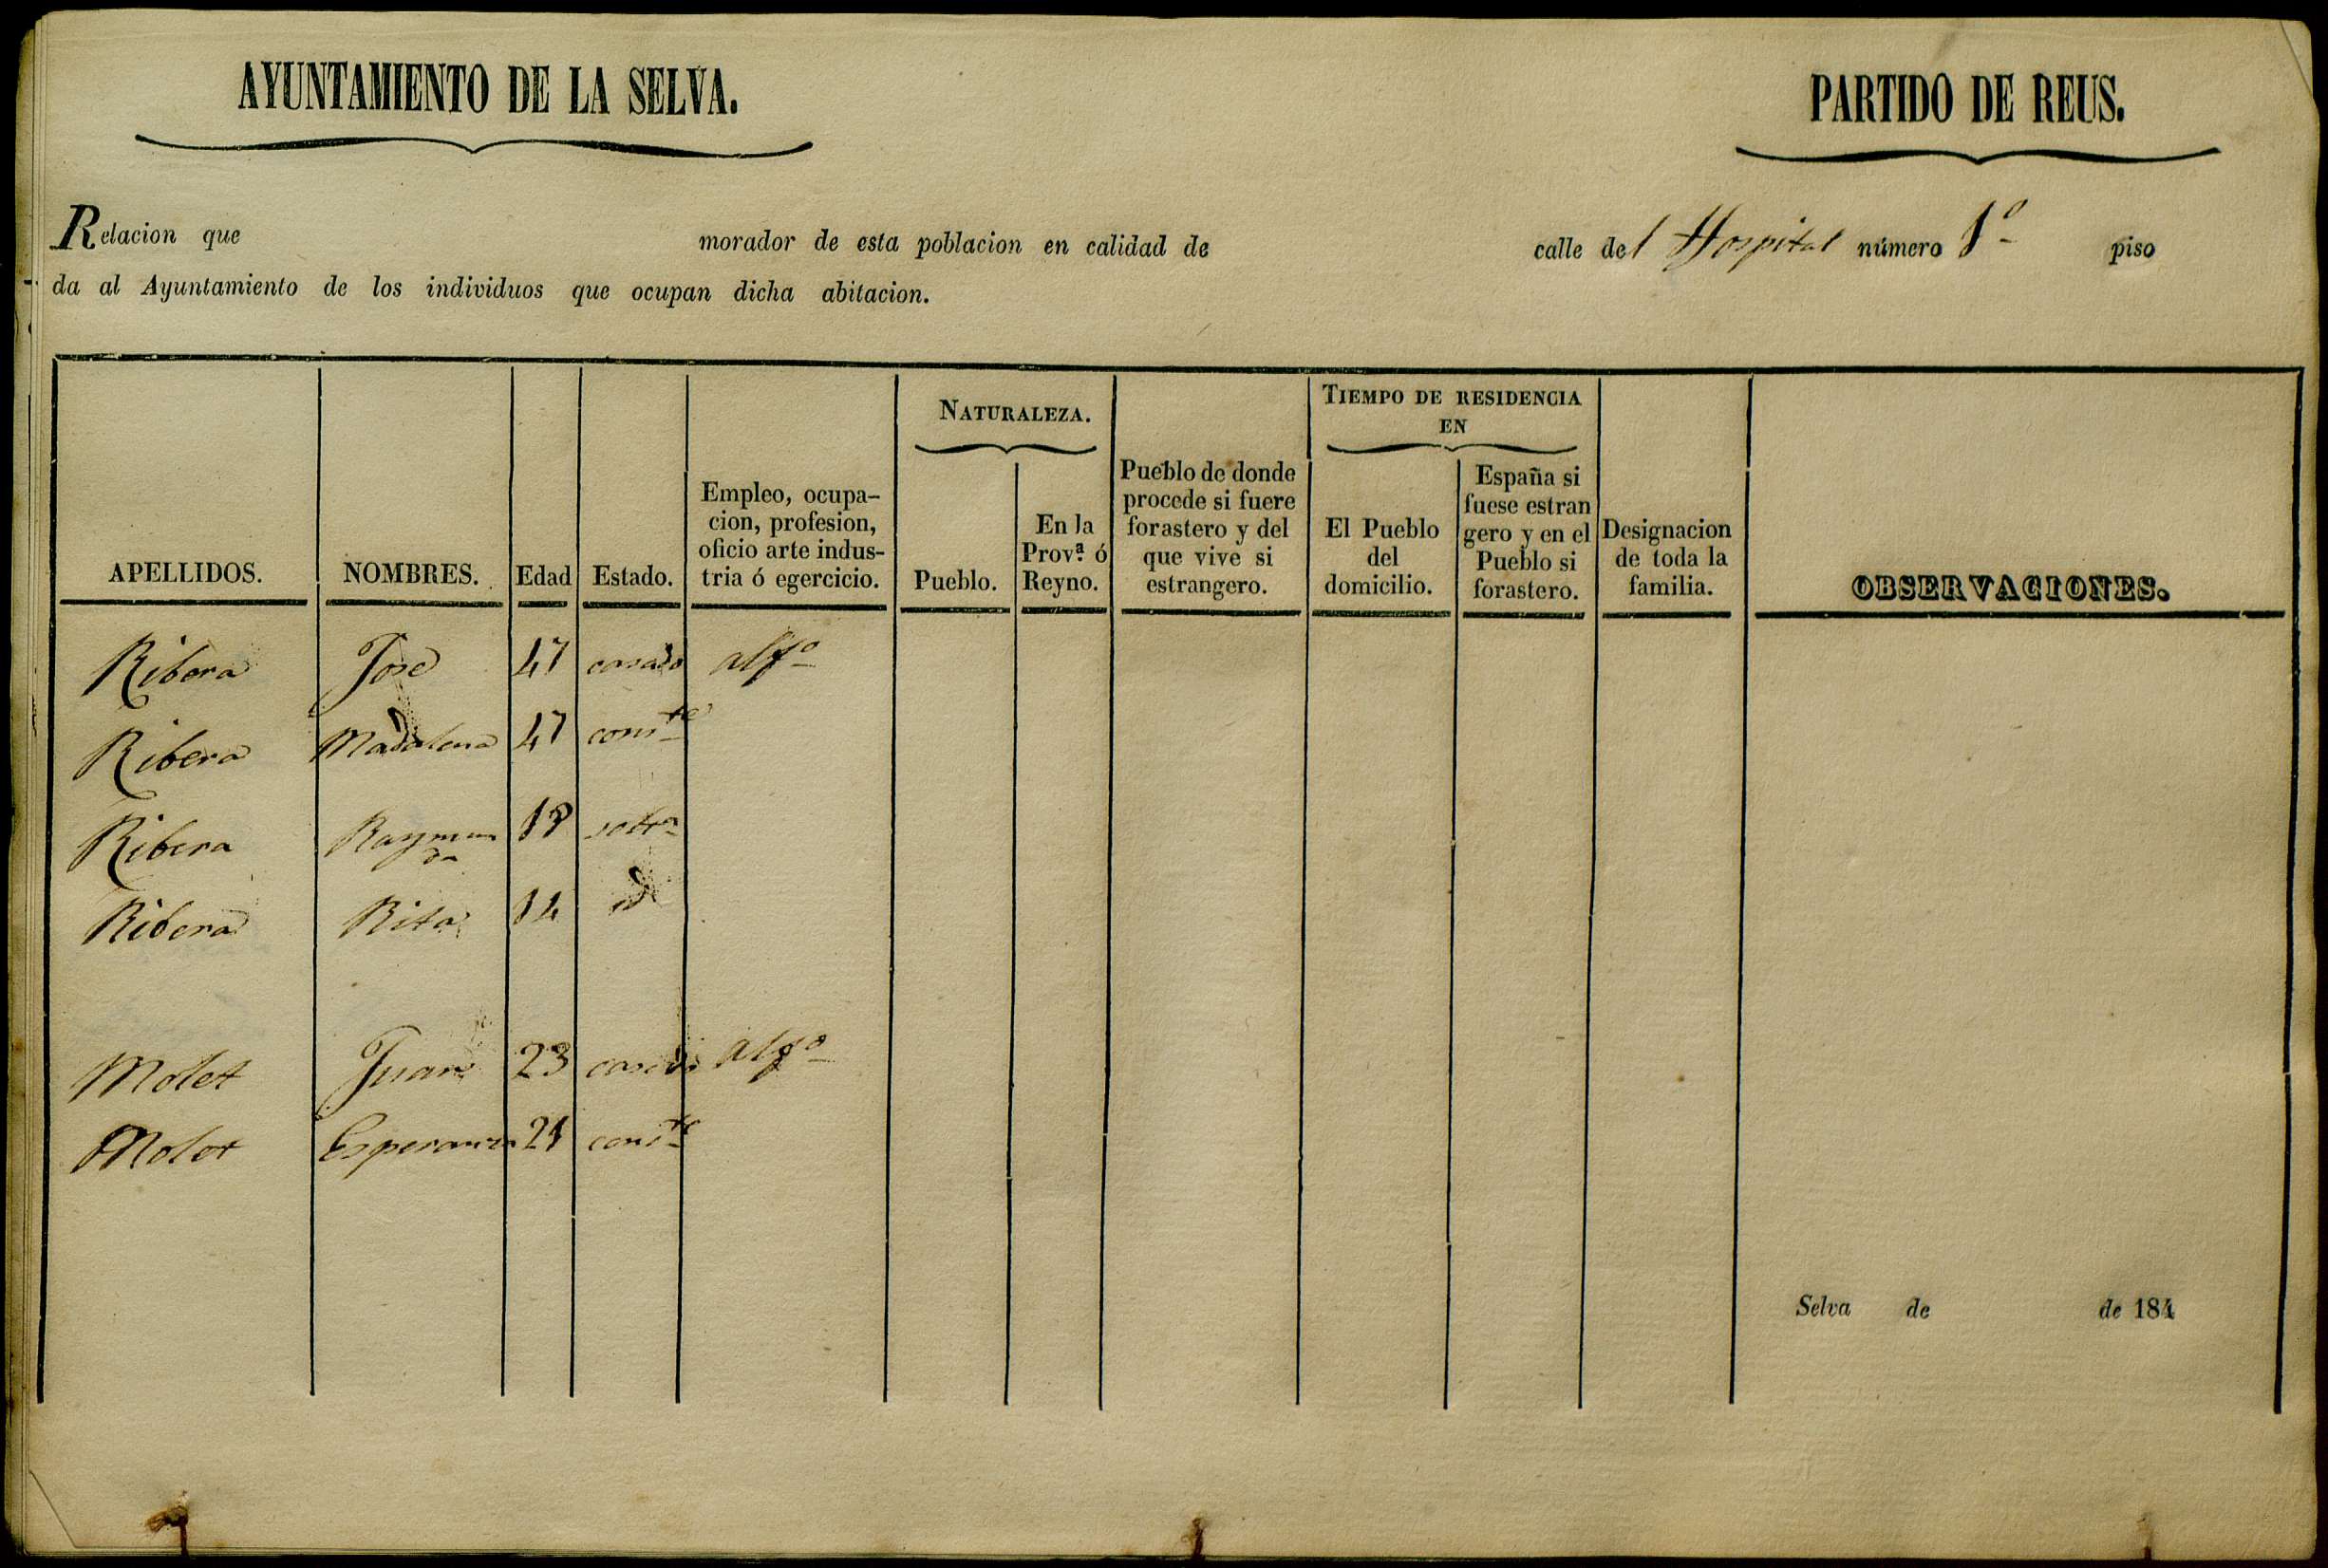 AYUNTAMIENTO DE LA SELVA.
PARTIDO DE REUS.
Relacion que morador de esta poblacion en calidad de calle del Hospital número 1º piso
da al Ayuntamiento de los individuos que ocupan dicha abitacion.
APELLIDOS.
NOMBRES.
Edad
Estado.
Empleo, ocupa-
cion, profesion,
oficio arte indus-
tria ó egercicio.
NATURALEZA.
Pueblo.
En la
Provª. ó
Reyno.
Pueblo de donde
procede si fuere
forastero y del
que vive si
estrangero.
TIEMPO DE RESIDENCIA
EN
El Pueblo
del
domicilio.
España si
fuese estran
gero y en el
Pueblo si
forastero.
Designacion
de toda la
familia.
OBSERVACIONES.
Ribera Jose 47 casado
Ribera Madalena 47
Ribera Raymun
da
Ribera Rita 14 id
Molet Juan 23 casado
Molet Esperanza 21
Selva de de 184